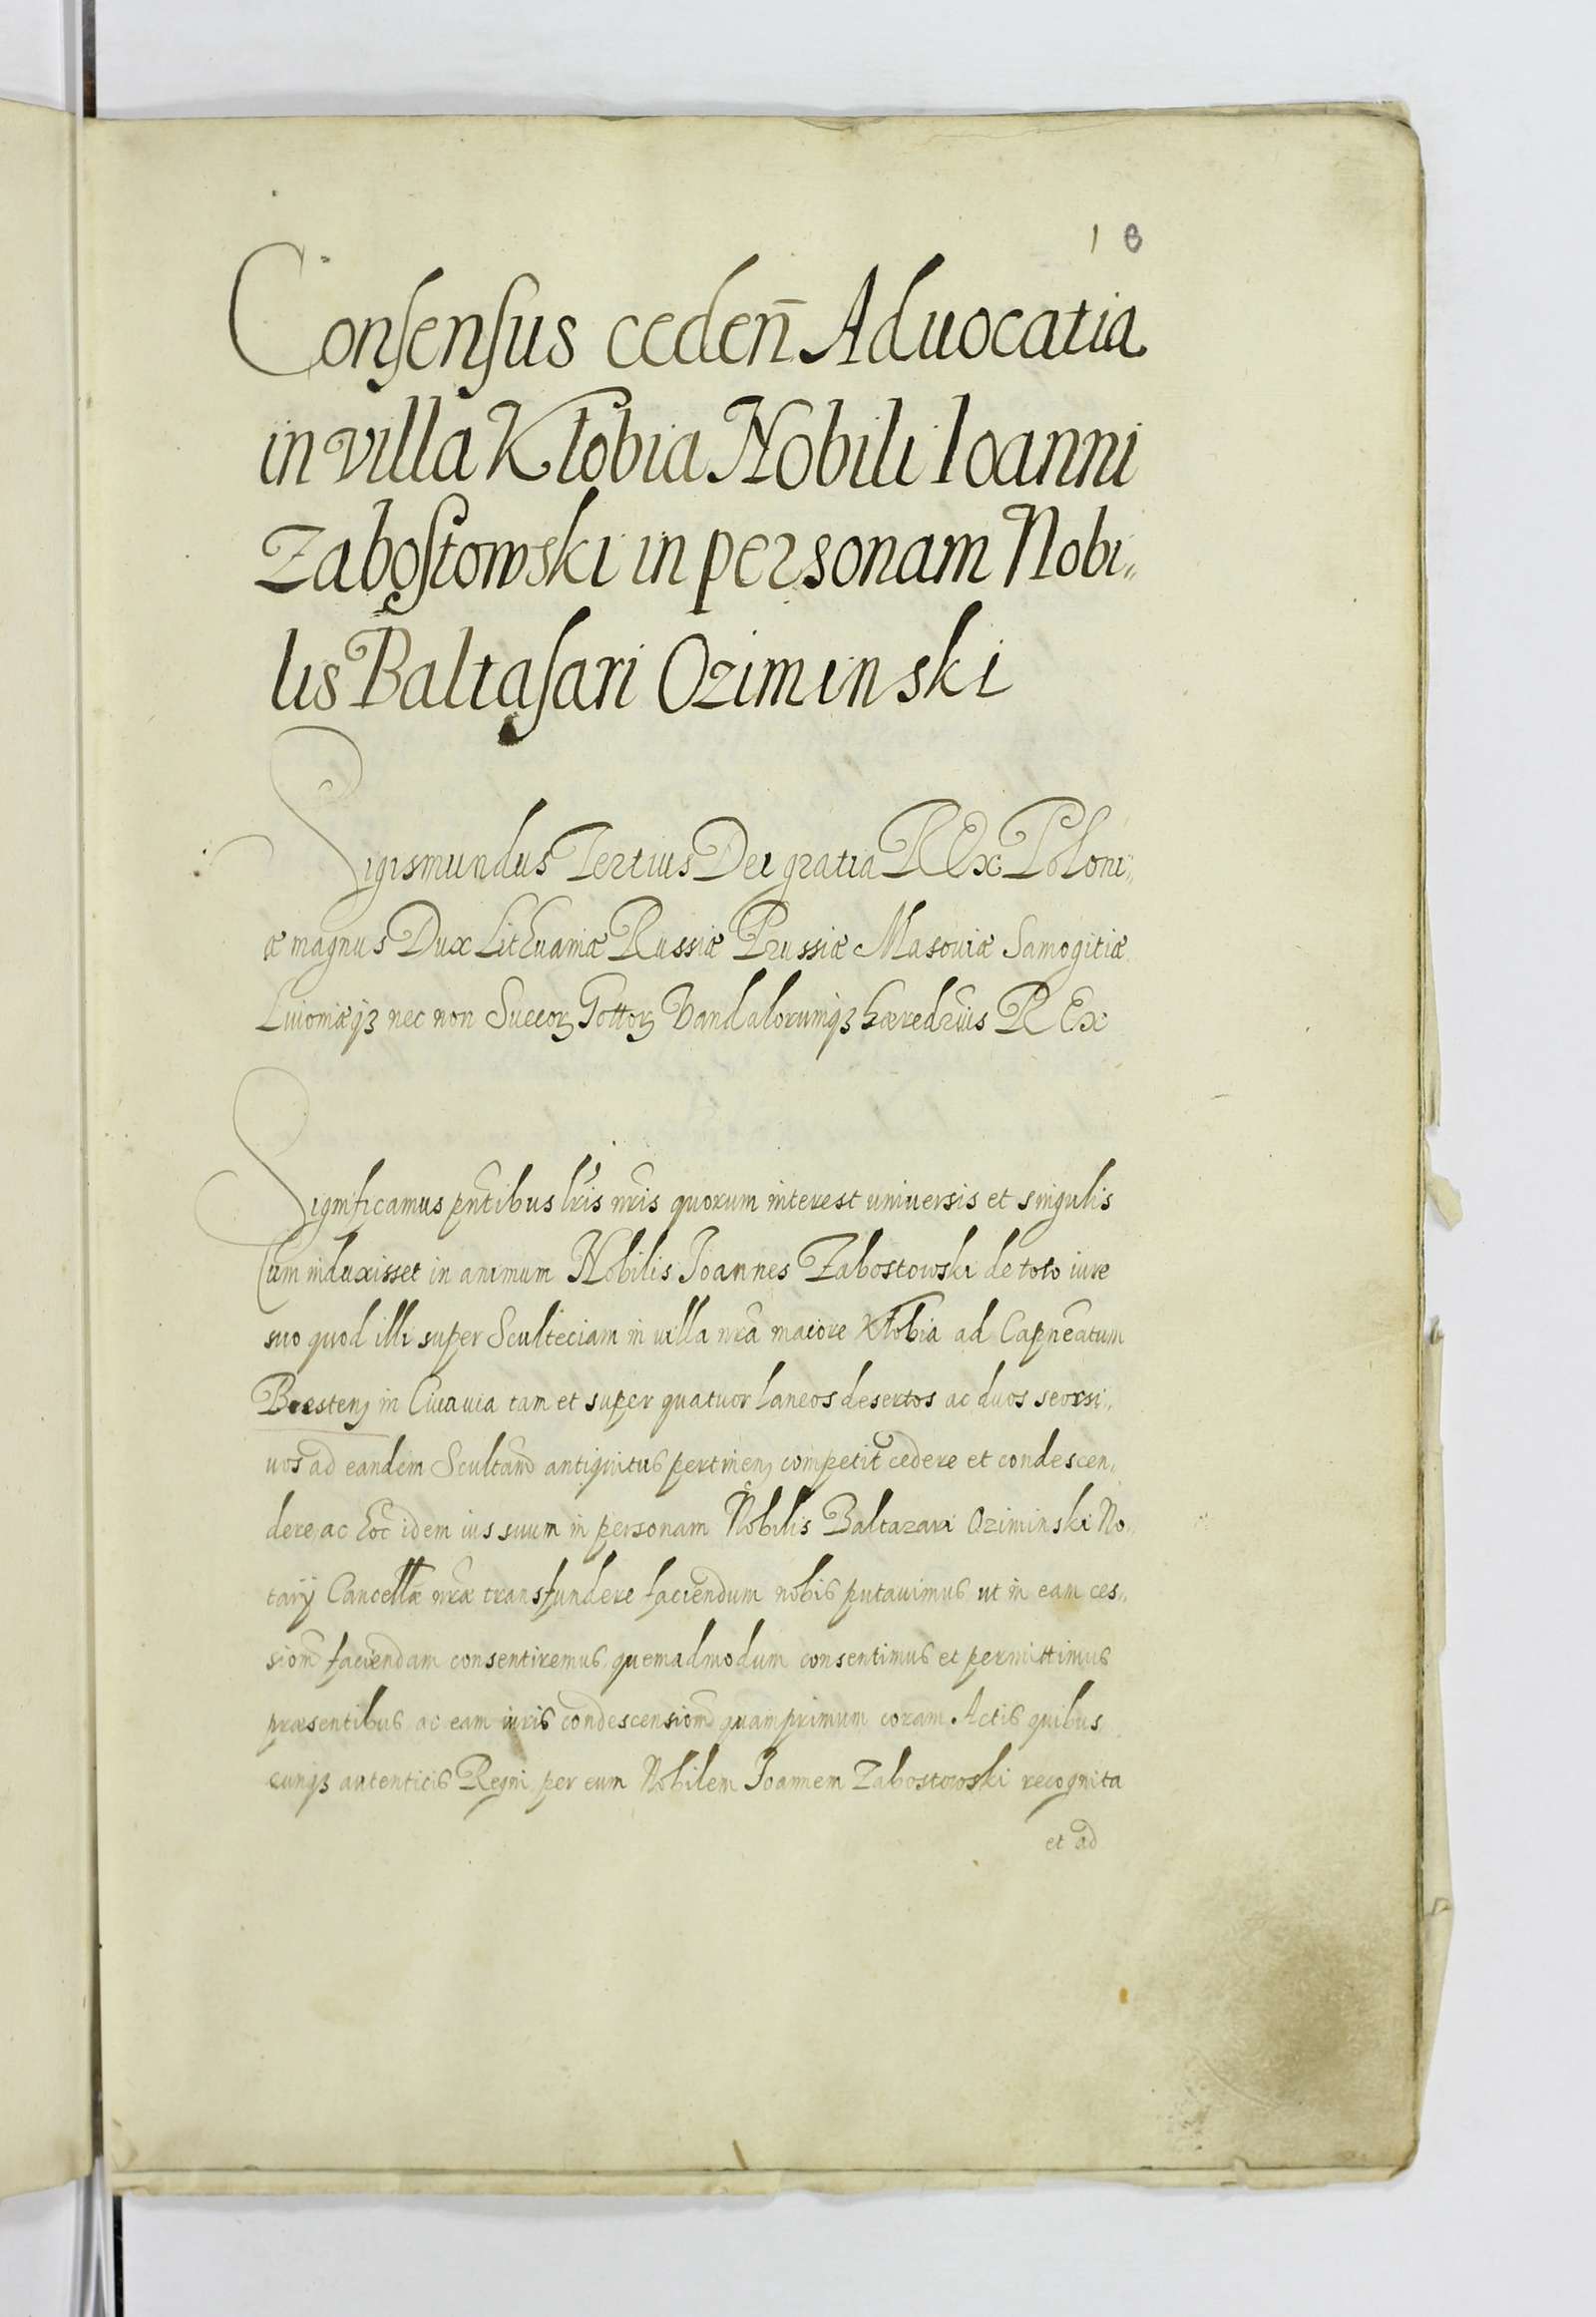 1 8
Consensus ceden̄ Aduocatia
in villa Kłobia Nobili Ioanni
Zabostowski in personam Nobi„
lis Baltasari Oziminski
Sigismundus Tertius Dei gratia REx Poloni„
æ magnus Dux Lithuaniæ Russiæ Prussiæ Masouiæ Samogitiæ
Liuoniæqȝ nec non Suecoꝝ Gottoꝝ Vandalorumqȝ hæredr̄ius REx
Significamus pn̄tibus lr̄is nr̄is quorum interest universis et singulis
Cum induxisset in animum Nobilis Joannes Zabostowski de toto iure
suo quod illi super Sculteciam in villa nr̄a maiore Kłobia ad Capneātum
Bresteñ in Cuiauia tam et super quatuor laneos desertos ac duos seorsi„
uos ad eandem Scultam̄ antiquitus pertineñ competit cedere et condescen„
dere ac hoc̄ idem ius suum in personam Nobilis Baltazari Oziminski No„
tarÿ Cancellæ nr̄æ transfundere faciendum nobis putauimus ut in eam ces„
siom̄ faciendam consentiremus, quemadmodum consentimus et permittimus
præsentibus ac eam iuris condescensiom̄ quamprimum coram Actis quibus
cunqȝ autenticis Regni per eum Nobilem Joannem Zabostowski recognita
et ad